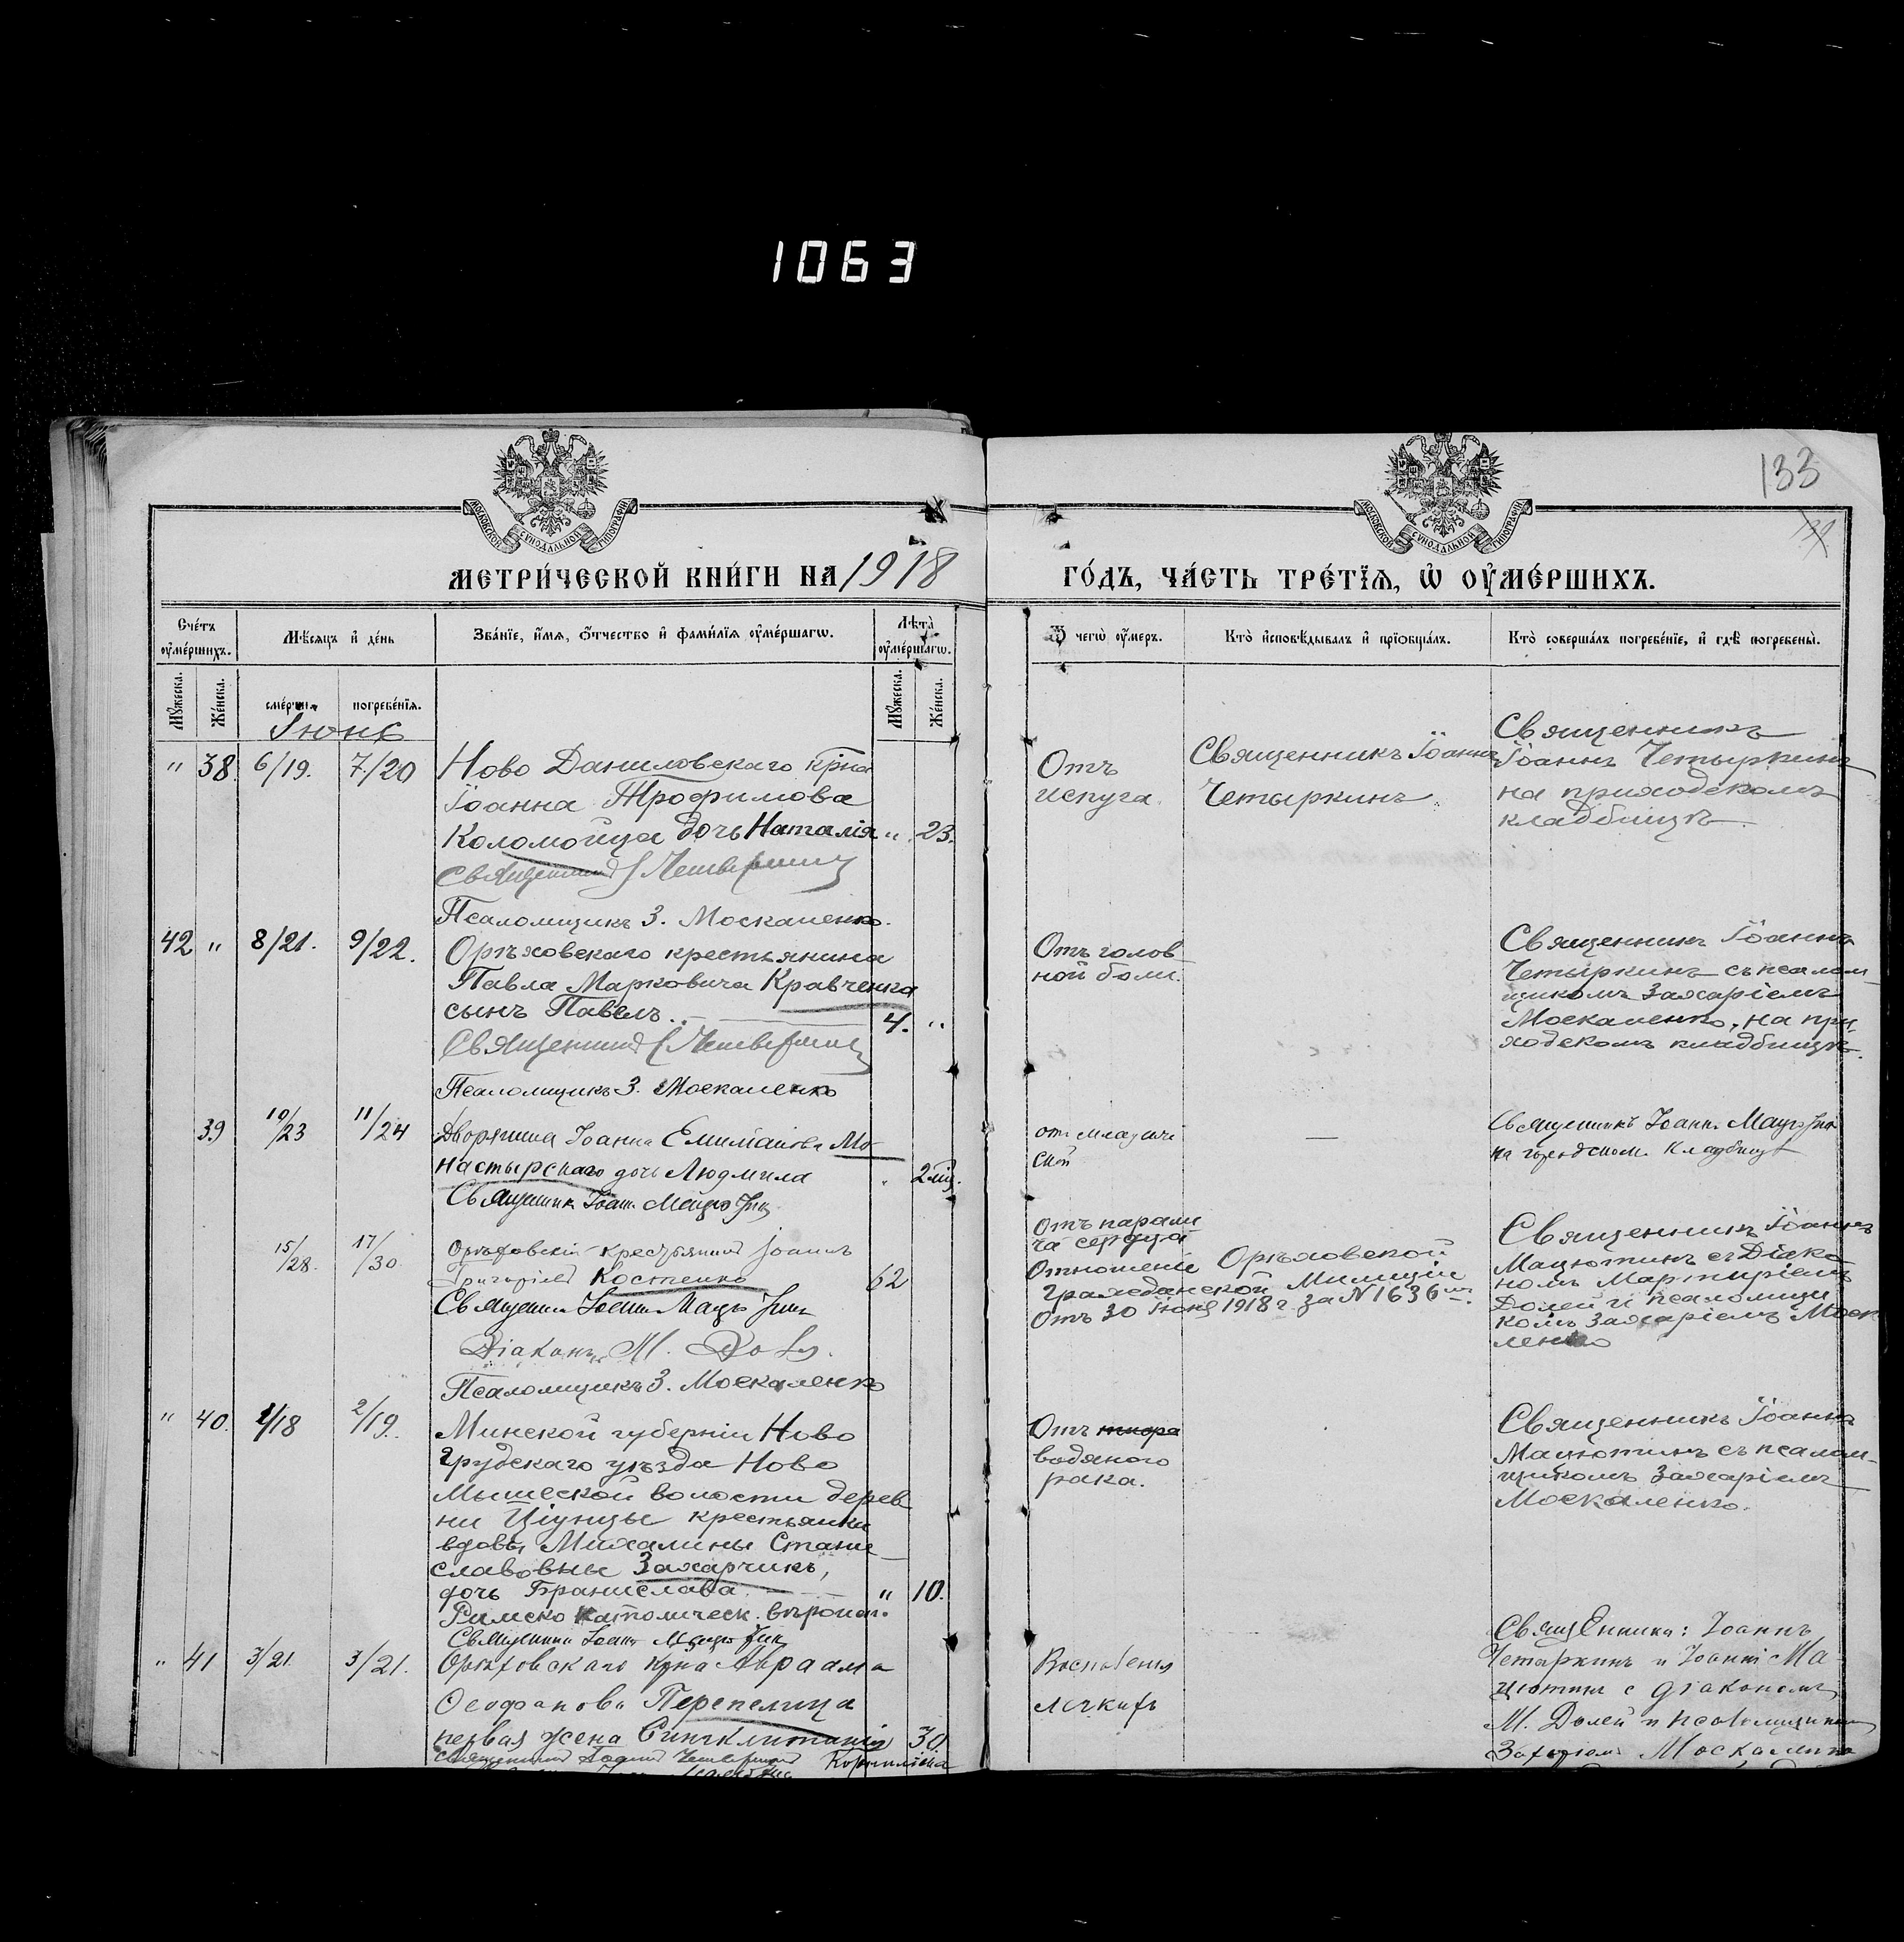 1063
133
МОСКОВСКОЙ СУНОДАЛЬНОЙ ТИПОГРАФІИ
МОСКОВСКОЙ СУНОДАЛЬНОЙ ТИПОГРАФІИ
МЕТРИ́ЧЕСКОЙ КНИ́ГИ НА 1918
ГО́ДЪ, ЧА́СТЬ ТРЕ́ТЇѦ, Ѡ҆ ОУ҆МЕ́РШИХЪ.
Сче́тъ оу҆ме́ршихъ.
Мѣ́сяцъ и҆ де́нь
Зва́нїе, и҆́мѧ, ѻ҆́тчество и҆ фами́лїѧ оу҆ме́ршагѡ.
Лѣ̀та оу҆ме́ршагѡ.
Ѿ чегѡ̀ оу҆́меръ.
Кто̀ и҆сповѣ́дывалъ и҆ прїѡбща́лъ.
Кто̀ соверша́лъ погребе́нїе, и҆ гдѣ̀ погребены̀.
Мꙋ́жеска.
Же́нска.
сме́рти.
погребе́нїѧ.
Мꙋ́жеска.
Же́нска.
Іюнь
" 38. 6/19. 7/20
Ново Даниловскаго кр-на
Іоанна Трофимова
Коломойца дочь Наталія " 23.
Священникъ І Четыркинъ
Псаломщикъ З. Москаленко.
Отъ
испуга.
Священникъ Іоаннъ
Четыркинъ.
Священникъ
Іоаннъ Четыркинъ
на приходскомъ
кладбищѣ
42 " 8/21. 9/22.
Орѣховскаго крестьянина
Павла Марковича Кравченка
сынъ Павелъ. 4. "
Священникъ І Четыркинъ
Псаломщикъ З. Москаленко
Отъ голов
ной боли.
Священникъ Іоаннъ
Четыркинъ съ псалом
щикомъ Захаріемъ
Москаленко, на при
ходскомъ кладбищѣ.
39 10/23 11/24
Дворянина Іоанна Мо
настырскаго дочь Людмила 2 мѣс.
Священникъ Іоан. Мацютин
отъ младенче
ской
Священникъ Іоанн. Мацютин
на городском. кладбищѣ
15/28. 17/30.
Орѣховскій крестьянинъ Іоаннъ
Григоріев Костенко 62
Священник Іоанн Мацютин
Діаконъ М. Доля.
Псаломщикъ З. Москаленко
Отъ парали
ча сердца
Отношеніе Орѣховской
Гражданской Милиціи
Отъ 30 Іюня 1918 г. за N 1636
Священникъ Іоаннъ
Мацютинъ съ Діако
номъ Мартиріемъ
Долей и псаломщи
комъ Захаріемъ Моск
ленко
" 40. 2/18 2/19.
Минской губерніи Ново
грудскаго уѣзда Ново
Мышской волости дерев
ни крестьянки
вдовы Михалины Стани
славовны Захарчикъ,
дочь Браниславa " 10.
Римско католическ. вѣроисп.
Священник Іоанн Мацютин
Отъ
водяного
рака.
Священникъ Іоаннъ
Мацютинъ съ псалом
щикомъ Захаріемъ
Москаленко.
" 41 3/21 3/21.
Орѣховскаго кр-на Авраама
Феофанова Перепелица
первая жена Синклитикія 30.
Корниліева
Воспаленія
легкихъ
Священники: Іоаннъ
Четыркинъ и Іоаннъ Ма
цютин с діакономъ
М. Долей и псаломщиком
Захаріемъ Москаленко